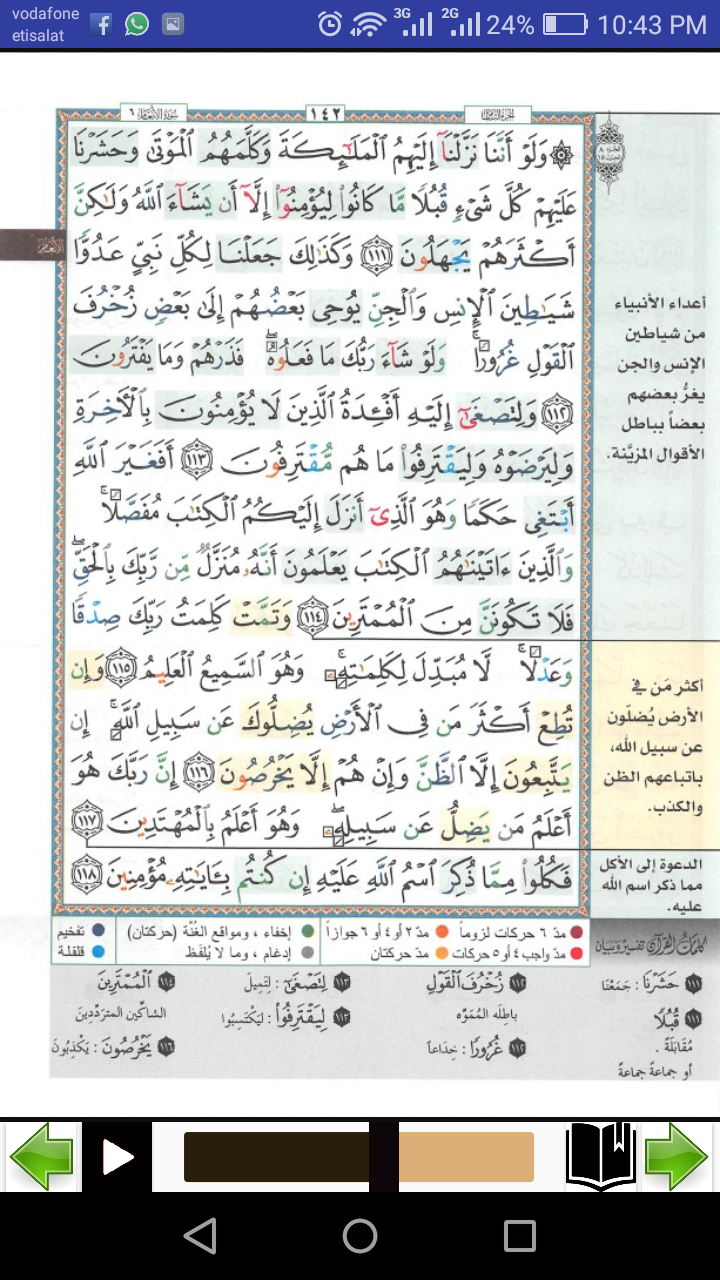 vodafone
etisalat
3G
2G
24%
10:43 PM
سورة الأنعام ٦
١٤٢
الجزء الثامن
۞ وَلَوْ أَنَّنَا نَزَّلْنَآ إِلَيْهِمُ ٱلْمَلَـٰٓئِكَةَ وَكَلَّمَهُمُ ٱلْمَوْتَىٰ وَحَشَرْنَا
عَلَيْهِمْ كُلَّ شَىْءٍ قُبُلًا مَّا كَانُوا۟ لِيُؤْمِنُوٓا۟ إِلَّآ أَن يَشَآءَ ٱللَّهُ وَلَـٰكِنَّ
أَكْثَرَهُمْ يَجْهَلُونَ ١١١ وَكَذَٰلِكَ جَعَلْنَا لِكُلِّ نَبِىٍّ عَدُوًّا
شَيَـٰطِينَ ٱلْإِنسِ وَٱلْجِنِّ يُوحِى بَعْضُهُمْ إِلَىٰ بَعْضٍ زُخْرُفَ
ٱلْقَوْلِ غُرُورًا ۚ وَلَوْ شَآءَ رَبُّكَ مَا فَعَلُوهُ ۖ فَذَرْهُمْ وَمَا يَفْتَرُونَ
١١٢ وَلِتَصْغَىٰٓ إِلَيْهِ أَفْـِٔدَةُ ٱلَّذِينَ لَا يُؤْمِنُونَ بِٱلْـَٔاخِرَةِ
وَلِيَرْضَوْهُ وَلِيَقْتَرِفُوا۟ مَا هُم مُّقْتَرِفُونَ ١١٣ أَفَغَيْرَ ٱللَّهِ
أَبْتَغِى حَكَمًا وَهُوَ ٱلَّذِىٓ أَنزَلَ إِلَيْكُمُ ٱلْكِتَـٰبَ مُفَصَّلًا ۚ
وَٱلَّذِينَ ءَاتَيْنَـٰهُمُ ٱلْكِتَـٰبَ يَعْلَمُونَ أَنَّهُۥ مُنَزَّلٌ مِّن رَّبِّكَ بِٱلْحَقِّ ۖ
فَلَا تَكُونَنَّ مِنَ ٱلْمُمْتَرِينَ ١١٤ وَتَمَّتْ كَلِمَتُ رَبِّكَ صِدْقًا
وَعَدْلًا ۚ لَّا مُبَدِّلَ لِكَلِمَـٰتِهِۦ ۚ وَهُوَ ٱلسَّمِيعُ ٱلْعَلِيمُ ١١٥ وَإِن
تُطِعْ أَكْثَرَ مَن فِى ٱلْأَرْضِ يُضِلُّوكَ عَن سَبِيلِ ٱللَّهِ ۚ إِن
يَتَّبِعُونَ إِلَّا ٱلظَّنَّ وَإِنْ هُمْ إِلَّا يَخْرُصُونَ ١١٦ إِنَّ رَبَّكَ هُوَ
أَعْلَمُ مَن يَضِلُّ عَن سَبِيلِهِۦ ۖ وَهُوَ أَعْلَمُ بِٱلْمُهْتَدِينَ ١١٧
فَكُلُوا۟ مِمَّا ذُكِرَ ٱسْمُ ٱللَّهِ عَلَيْهِ إِن كُنتُم بِـَٔايَـٰتِهِۦ مُؤْمِنِينَ ١١٨
الأنعام
أعداء الأنبياء
من شياطين
الإنس والجن
يغرُّ بعضهم
بعضاً بباطل
الأقوال المزيَّنة.
أكثر مَن في
الأرض يُضلّون
عن سبيل الله،
باتباعهم الظن
والكذب.
الدعوة إلى الأكل
مما ذكر اسم الله
عليه.
مدّ ٦ حركات لزوماً مدّ ٢ أو ٤ أو ٦ جوازاً إخفاء ، ومواقع الغُنَّة (حركتان) تفخيم
مدّ واجب ٤ أو ٥ حركات مدّ حركتان إدغام ، وما لا يُلفَظ قلقلة
كلمات القرآن تفسير وبيان
١١١ حَشَرْنَا : جَمَعْنَا
١١١ قُبُلًا
مُقَابَلَةً .
أو جماعةً جماعةً
١١٢ زُخْرُفَ القَوْلِ
باطِلَه المُمَوَّه
١١٢ غُرُورًا : خِدَاعاً
١١٣ لِتَصْغَىٰ : لِتَمِيلَ
١١٣ لِيَقْتَرِفُوا : لِيَكْتَسِبُوا
١١٤ المُمْتَرِينَ
الشاكِّين المتردِّدينَ
١١٦ يَخْرُصُونَ : يَكْذِبُونَ